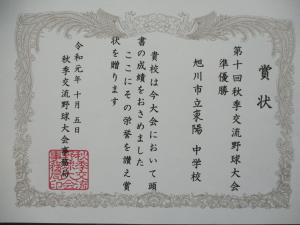 賞状
第十回秋季交流野球大会
準優勝
旭川市立東陽中学校
貴校は今大会において頭
書の成績をおさめました
ここにその栄誉を讃え賞
状を贈ります
令和元年十月五日
秋季交流野球大会事務局